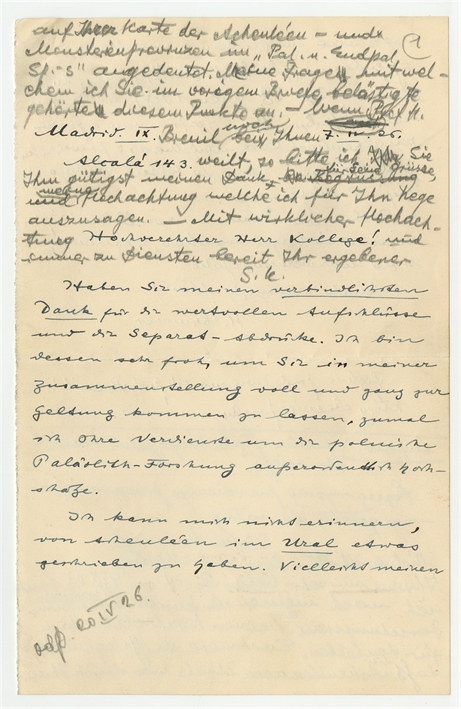 auf Ihrer Karte der Acheuléen- und
Moustérienprovinzen im „Pal. u. Endpal.
Sp.-s" angedeutet. Meine Fragen mit wel-
chem ich Sie im vorigen Briefe belästigte
gehörten diesem Punkte an. – Wenn Prof. H.
Madrid. IX. Breuil noch bei Ihnen 7. IV. 26.
Alcalá 143. weilt, so bitte ich Sie
Ihm gütigst meinen Dank, Grüsse,
und Hochachtung welche ich für Ihn hege
auszusagen. – Mit wirklicher Hochach-
tung Hochverehrter Herr Kollege! und
immer zu Diensten bereit Ihr ergebener
S. K.
Haben Sie meinen verbindlichsten
Dank für die wertvollen Aufschlüsse
und die Separat-Abdrücke. Ich bin
dessen sehr froh, um Sie in meiner
Zusammenstellung voll und ganz zur
Geltung kommen zu lassen, zumal
ich Ihre Verdienste um die polnische
Paläolith-Forschung außerordentlich hoch-
schätze.
Ich kann mich nicht erinnern,
von Acheuléen im Ural etwas
geschrieben zu haben. Vielleicht meinen
odp. 20 IV 26.